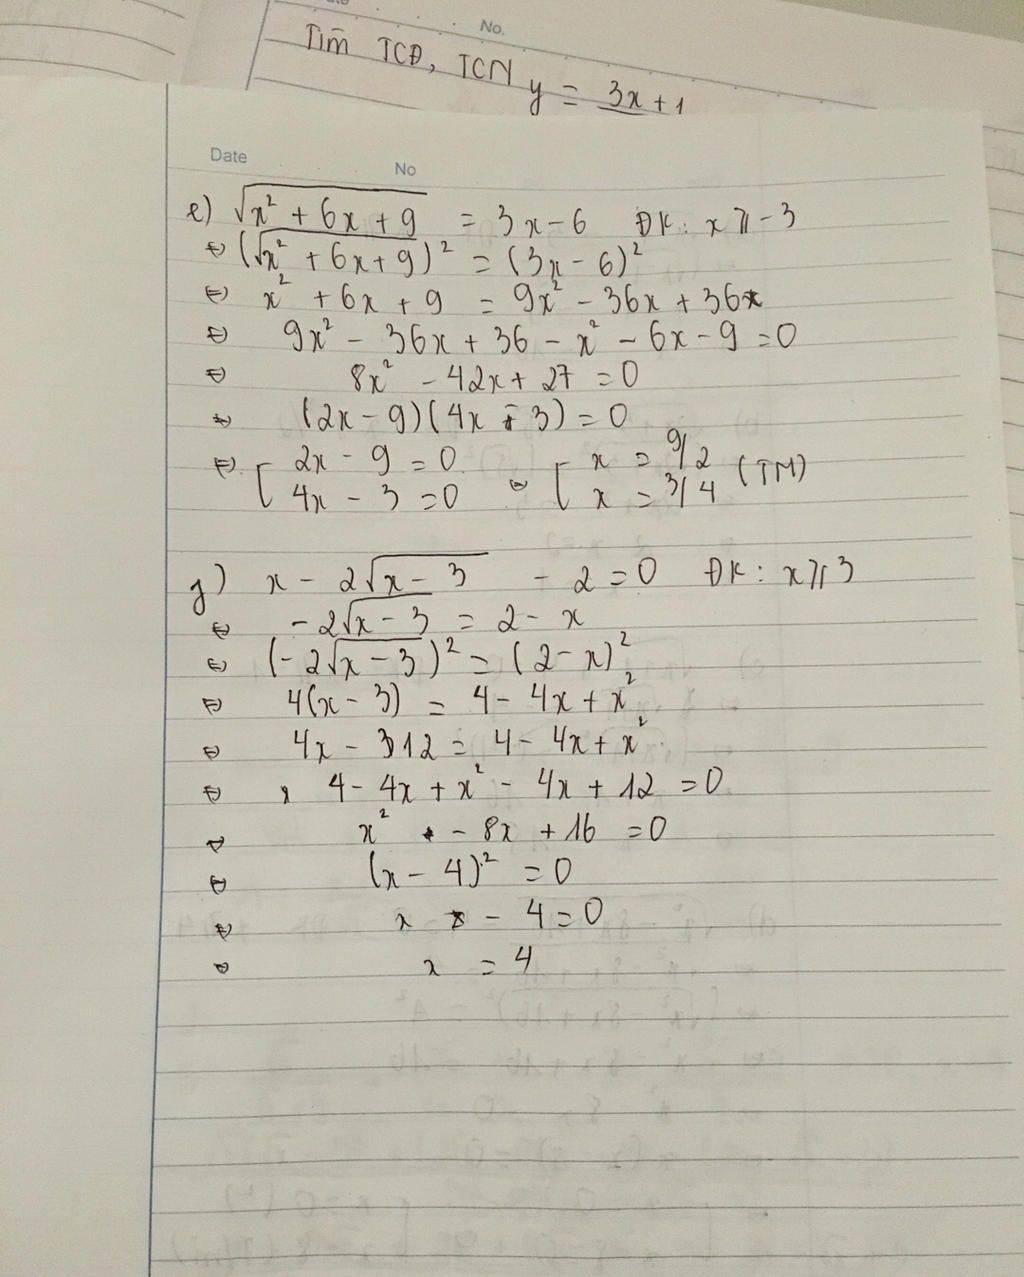 No.
Tìm TCĐ, TCN y = 3x + 1
Date No
e) √(x² + 6x + 9) = 3x - 6 ĐK: x ≥ -3
⇔ (√(x² + 6x + 9))² = (3x - 6)²
⇔ x² + 6x + 9 = 9x² - 36x + 36
⇔ 9x² - 36x + 36 - x² - 6x - 9 = 0
⇔ 8x² - 42x + 27 = 0
⇔ (2x - 9)(4x - 3) = 0
⇔ [ 2x - 9 = 0 ⇔ [ x = 9/2 (TM)
4x - 3 = 0 x = 3/4
g) x - 2√(x - 3) - 2 = 0 ĐK: x ≥ 3
⇔ -2√(x - 3) = 2 - x
⇔ (-2√(x - 3))² = (2 - x)²
⇔ 4(x - 3) = 4 - 4x + x²
⇔ 4x - 12 = 4 - 4x + x²
⇔ 4 - 4x + x² - 4x + 12 = 0
⇔ x² - 8x + 16 = 0
⇔ (x - 4)² = 0
⇔ x - 4 = 0
⇔ x = 4